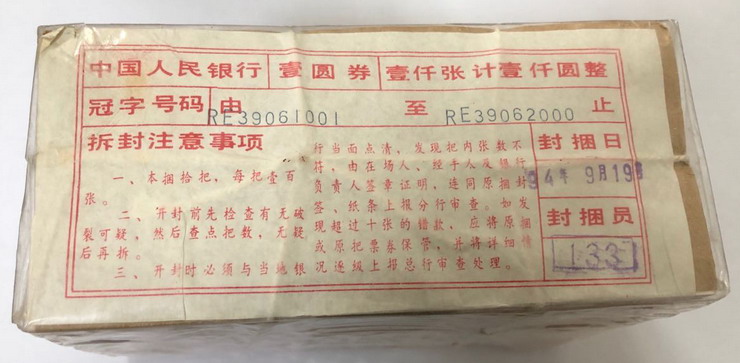 中国人民银行 壹圆券 壹仟张计壹仟圆整
冠字号码 由 RE39061001 至 RE39062000 止
拆封注意事项
一、本捆拾把，每把壹百
张。
二、开封前先检查有无破
裂可疑，然后查点把数，无疑
后再拆。
三、开封时必须与当地银
行当面点清，发现把内张数不
符，由在场人、经手人及银行
负责人签章证明，连同原捆封
签、纸条上报分行审查。如发
现超过十张的错款，应将原捆
或原把票券保管，并将详细情
况逐级上报总行审查处理。
封捆日
94年9月19日
封捆员
133